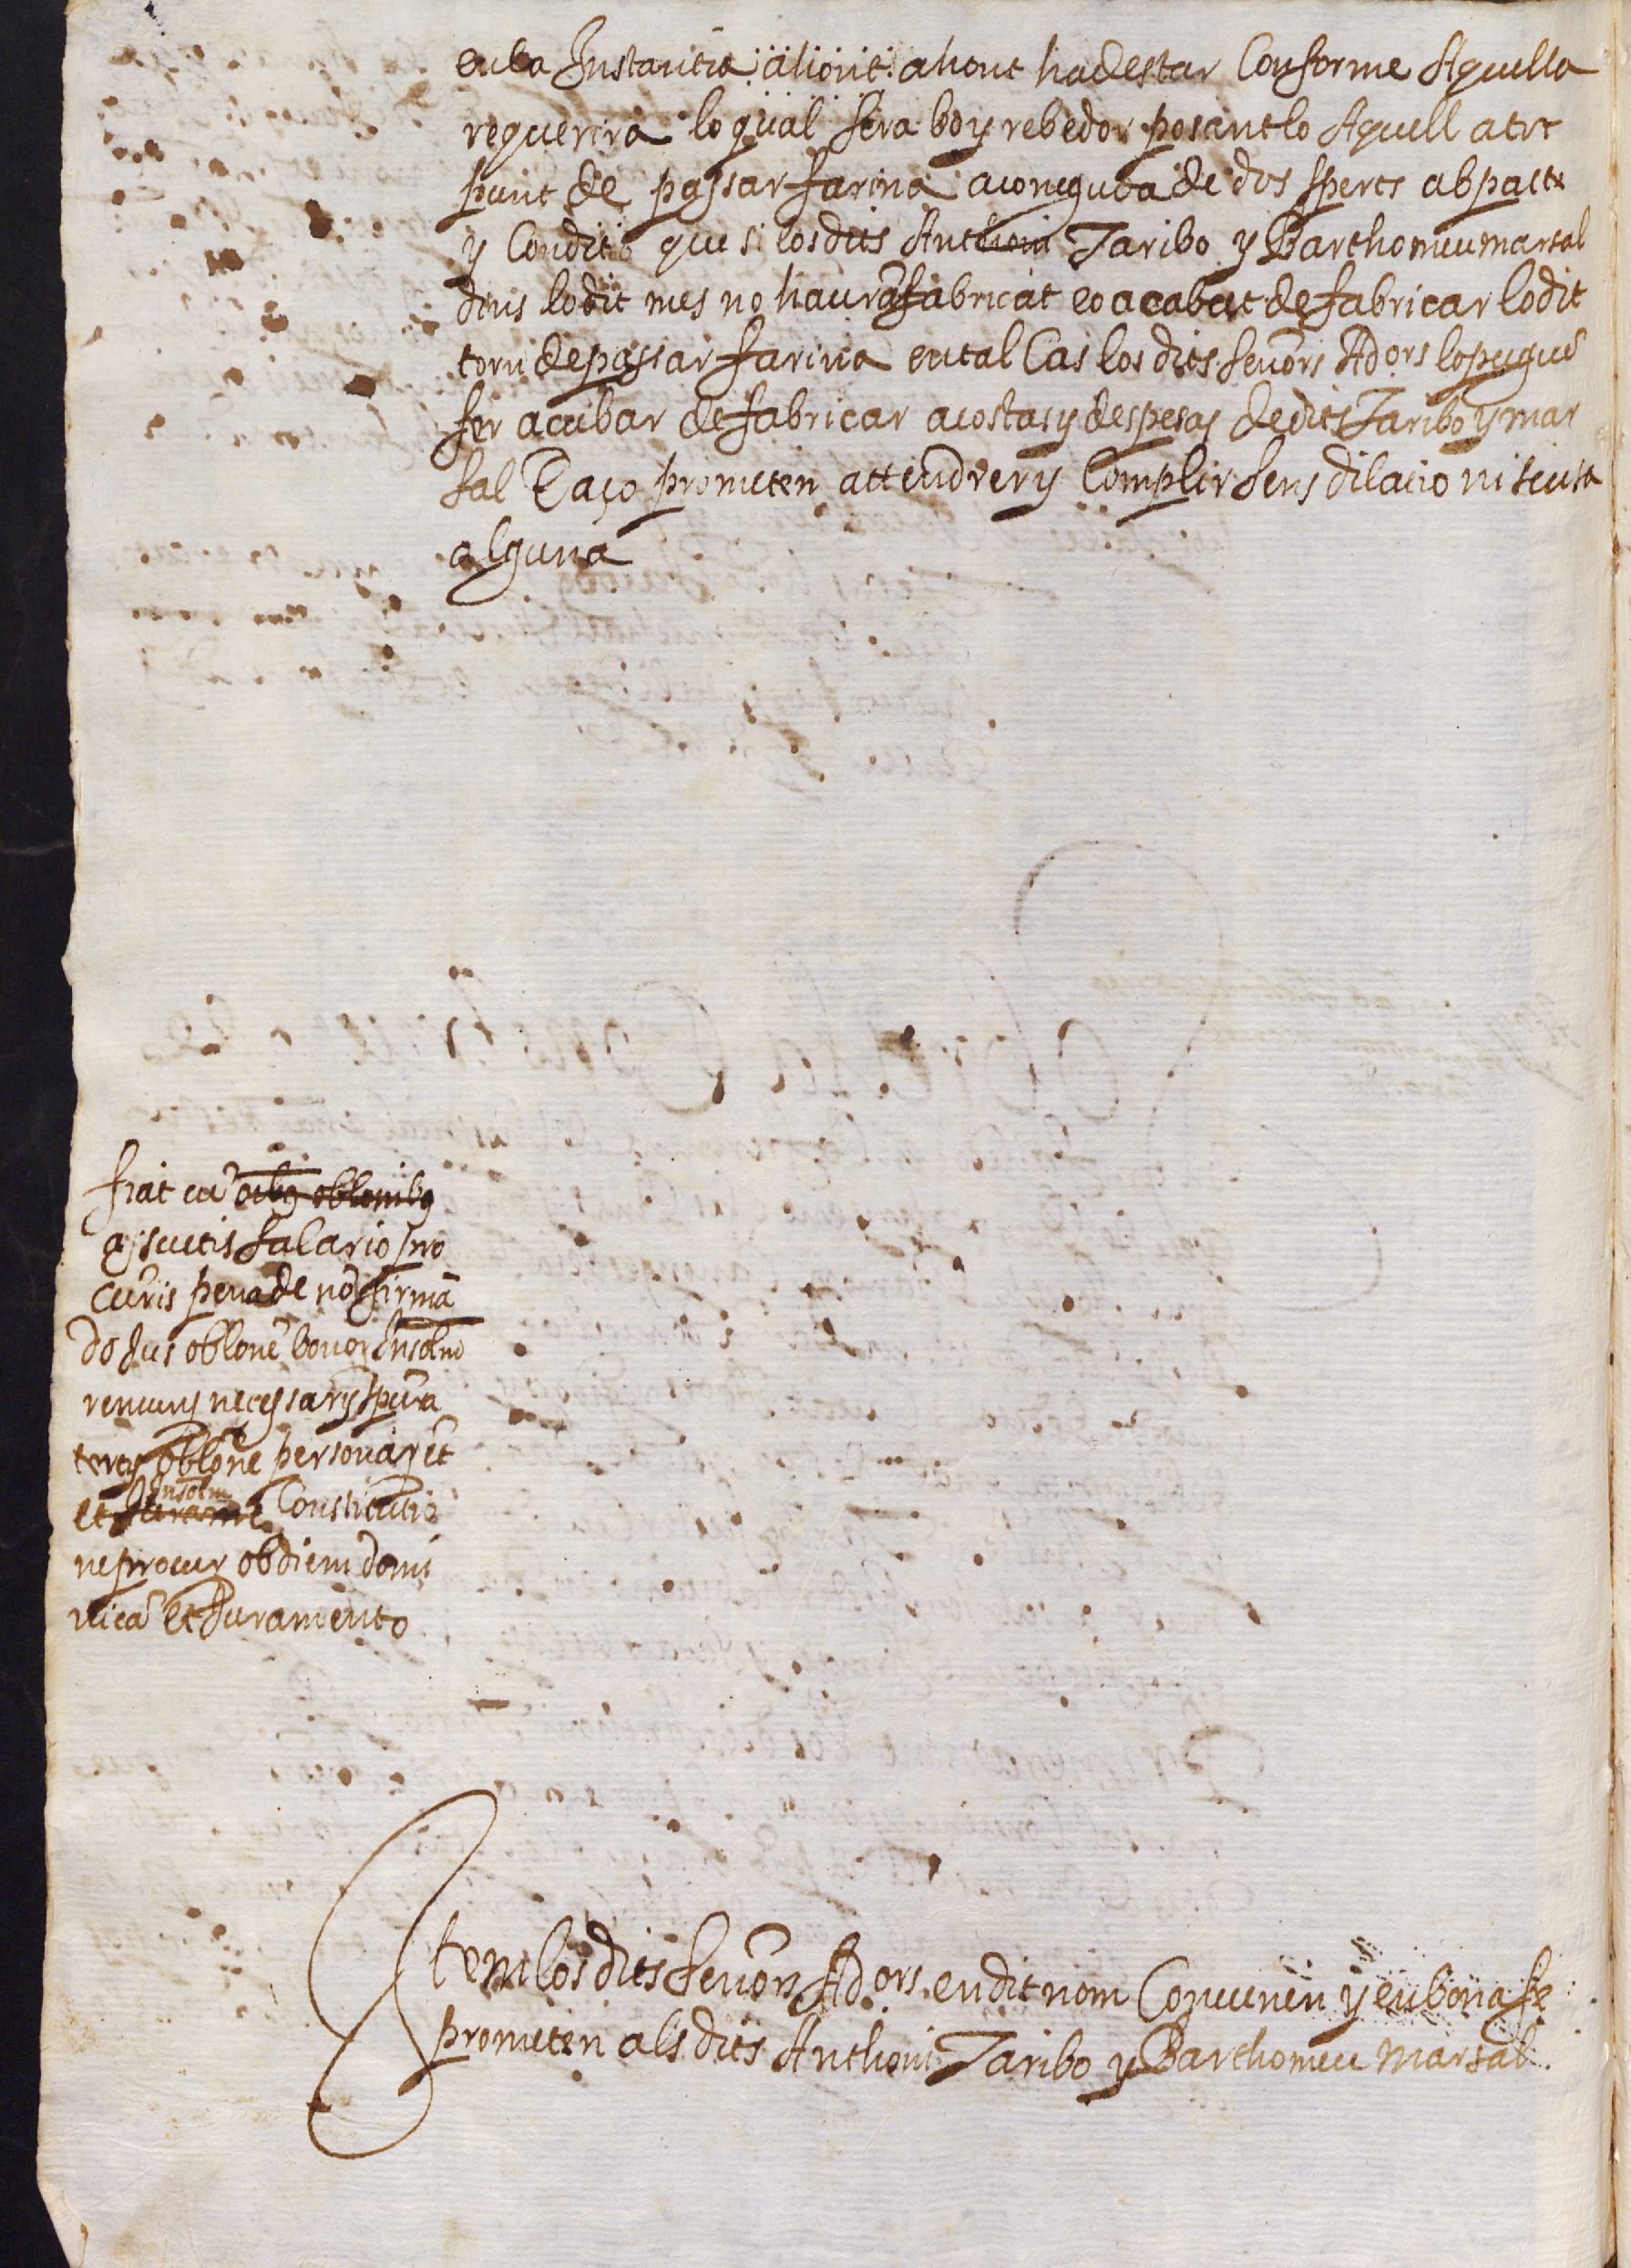 en la Instantia ahont ahont ha destar Conforme Aquella
requerira lo qual sera bo y rebedor posantlo Aquell a tot
punt de passar farina a coneguda de dos sperts ab pacte
y Conditio que si los dits Anthoni Taribo y Barthomeu marsal
dins lo dit mes no haurā fabricat eo acabat de fabricar lo dit
torn de passar farina en tal Cas los dits senōrs Ad.ors lo pugue
fer acabar de fabricar a costas y despesas de dits Taribo y mar
sal E aço prometen attendrer y Complir sens dilacio ni scusa
alguna
fiat cū oibꝫ oblonibꝫ
assuetis salario pro
curis pena de nō firmā
do Jus oblone bonoꝝ Insolm
renuncꝭ necessarijs spūra
tercij oblone personaꝝ et
Insolm
et Juramt Constitutio
ne procur ob diem domi
nicā et Juramento
Item los dits Senōrs Ad.ors en dit nom Convenen y en bona fe
prometen als dits Anthoni Taribo y Barthomeu Marsal